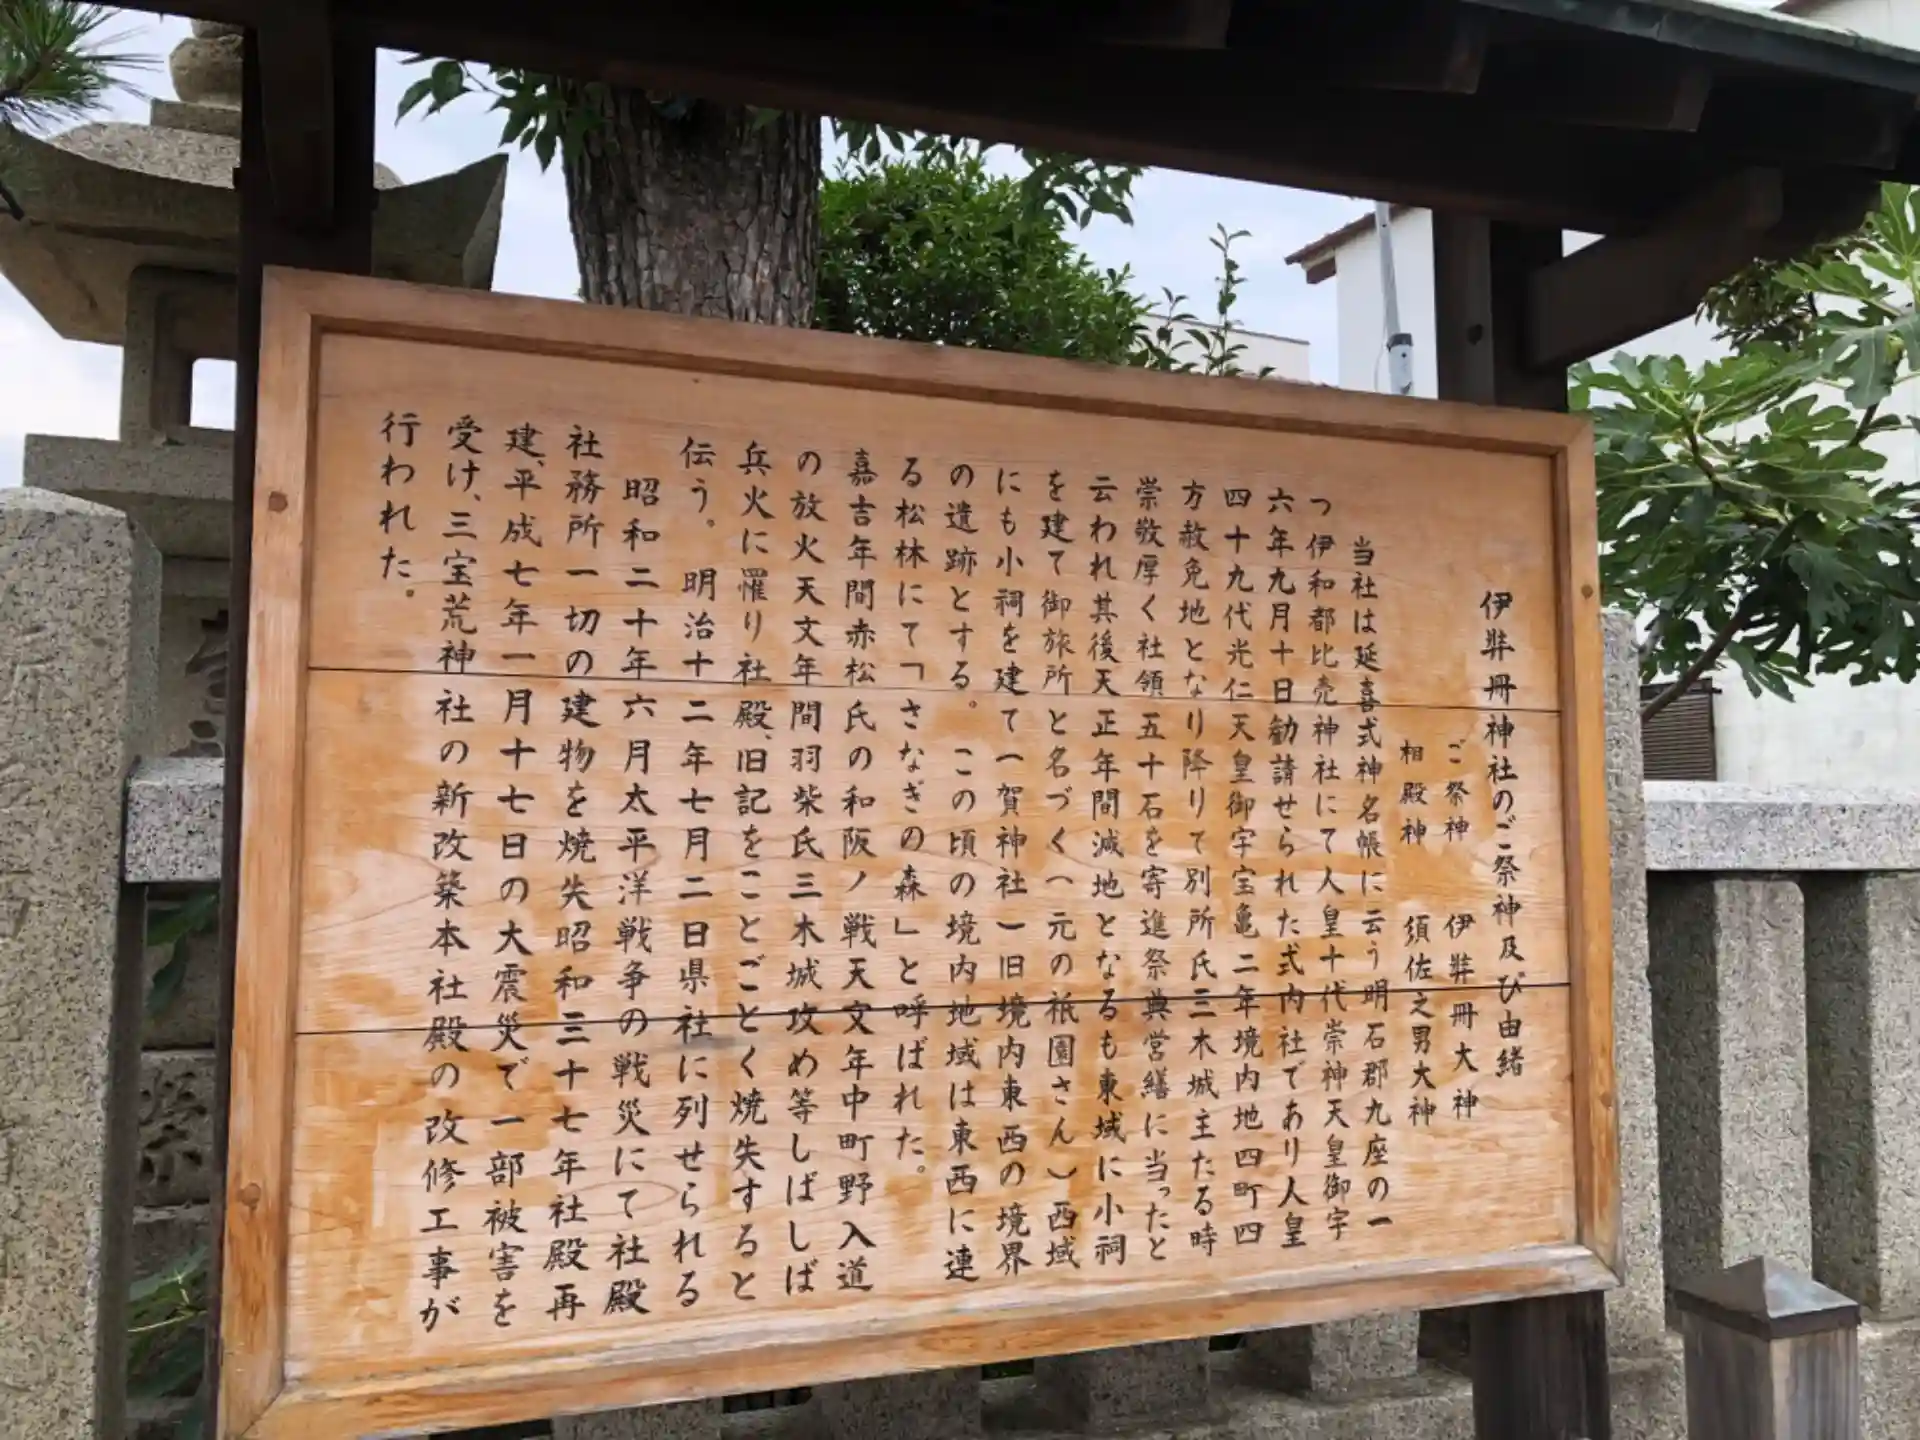 伊弉冊神社のご祭神及び由緒
ご祭神 伊弉冊大神
相殿神 須佐之男大神
当社は延喜式神名帳に云う明石郡九座の一
つ伊和都比売神社にて人皇十代崇神天皇御宇
六年九月十日勧請せられた式内社であり人皇
四十九代光仁天皇御宇宝亀二年境内地四町四
方赦免地となり降りて別所氏三木城主たる時
崇敬厚く社領五十石を寄進祭典営繕に当ったと
云われ其後天正年間減地となるも東域に小祠
を建て御旅所と名づく(元の祇園さん)西域
にも小祠を建て(一賀神社)旧境内東西の境界
の遺跡とする。この頃の境内地域は東西に連
る松林にて「さなぎの森」と呼ばれた。
嘉吉年間赤松氏の和阪ノ戦天文年中町野入道
の放火天文年間羽柴氏三木城攻め等しばしば
兵火に罹り社殿、旧記をことごとく焼失すると
伝う。明治十二年七月二日県社に列せられる
昭和二十年六月太平洋戦争の戦災にて社殿
社務所一切の建物を焼失昭和三十七年社殿再
建、平成七年一月十七日の大震災で一部被害を
受け、三宝荒神社の新改築本社殿の改修工事が
行われた。